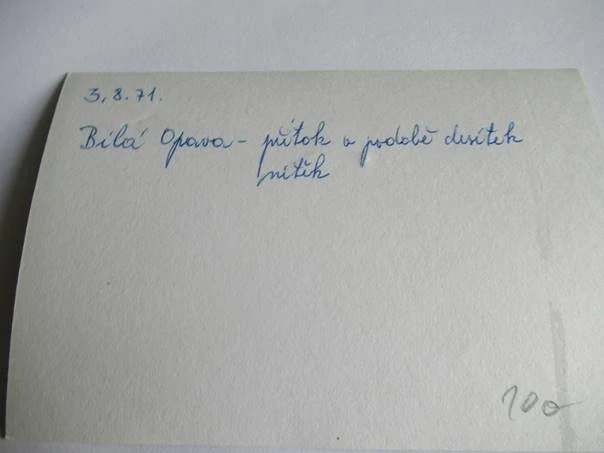 3. 8. 71.
Bílá Opava - přítok v podobě desítek
nitěk
100